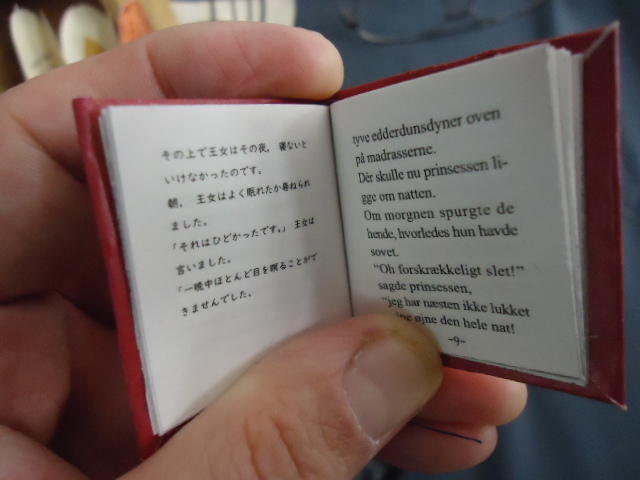 その上で王女はその夜, 寝ないと
いけなかったのです。
朝, 王女はよく眠れたか尋ねられ
ました。
「それはひどかったです。」 王女は
言いました。
「一晩中ほとんど目を瞑ることがで
きませんでした。
tyve edderdunsdyner oven
på madrasserne.
Dèr skulle nu prinsessen li-
gge om natten.
Om morgnen spurgte de
hende, hvorledes hun havde
sovet.
"Oh forskrækkeligt slet!"
sagde prinsessen,
"jeg har næsten ikke lukket
øjne den hele nat!
-9-